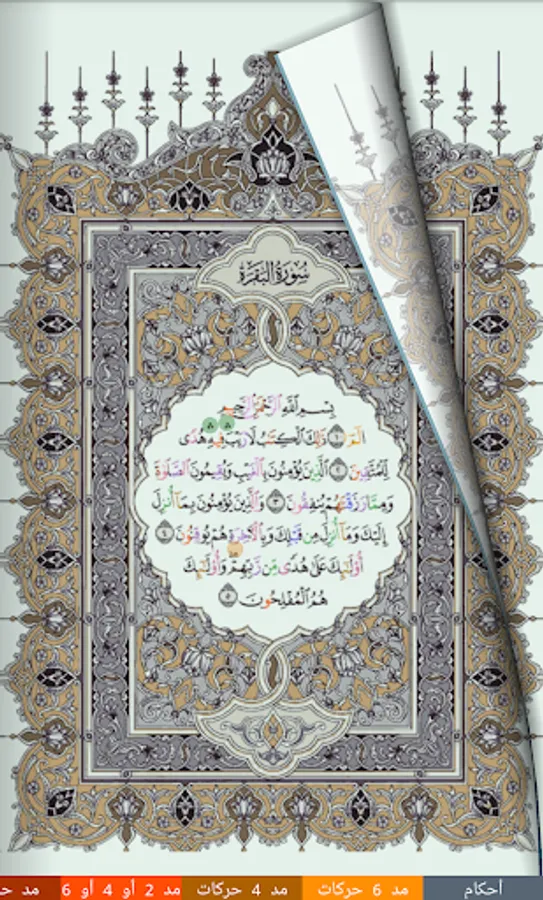 سُورَةُ البَقَرَة
بِسْمِ ٱللَّهِ ٱلرَّحْمَٰنِ ٱلرَّحِيمِ
الٓمٓ ۝١ ذَٰلِكَ ٱلْكِتَٰبُ لَا رَيْبَ ۛ فِيهِ ۛ هُدًى
لِّلْمُتَّقِينَ ۝٢ ٱلَّذِينَ يُؤْمِنُونَ بِٱلْغَيْبِ وَيُقِيمُونَ ٱلصَّلَوٰةَ
وَمِمَّا رَزَقْنَٰهُمْ يُنفِقُونَ ۝٣ وَٱلَّذِينَ يُؤْمِنُونَ بِمَآ أُنزِلَ
إِلَيْكَ وَمَآ أُنزِلَ مِن قَبْلِكَ وَبِٱلْأَخِرَةِ هُمْ يُوقِنُونَ ۝٤
أُو۟لَٰٓئِكَ عَلَىٰ هُدًى مِّن رَّبِّهِمْ ۖ وَأُو۟لَٰٓئِكَ
هُمُ ٱلْمُفْلِحُونَ ۝٥
أحكام مد 6 حركات مد 4 حركات مد 2 أو 4 أو 6 مد حـ